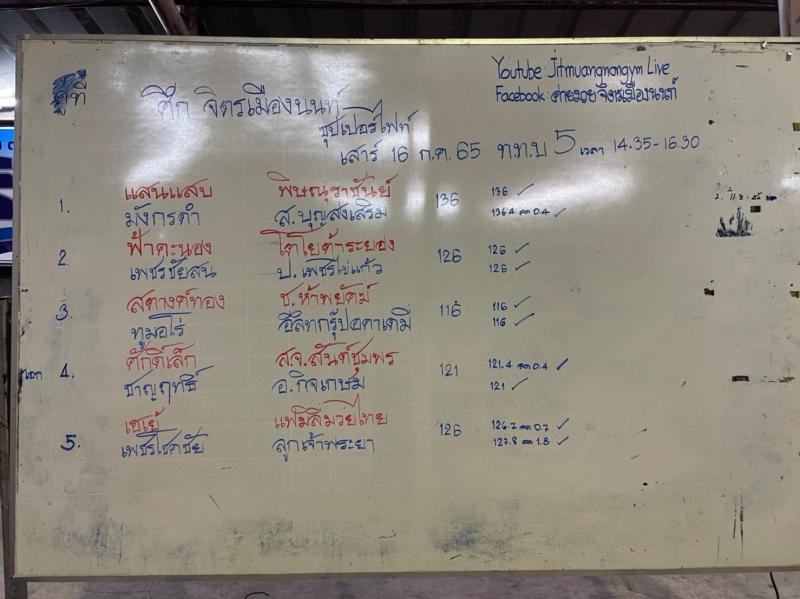 Youtube: Jitmuangnongym Live
Facebook ค่ายมวยจิตรเมืองนนท์
คู่ที่
ศึก จิตรเมืองนนท์
ซุปเปอร์ไฟท์
เสาร์ 16 ก.ค. 65 ท.ท.บ 5 เวลา 14.35-16.30
1. แสนแสบ พิษณุราชันย์ 136 136 ✓
มังกรดำ ส.บุญส่งเสริม 136.4 ลด 0.4 ✓
2. ฟ้าคะนอง โตโยต้าระยอง 126 126 ✓
เพชรชัยสน ป.เพชรไข่แก้ว 126 ✓
3. สตางค์ทอง ช.ห้าพยัคฆ์ 116 116 ✓
ทูมอโร่ อีลิทกรุ๊ปอคาเดมี่ 116 ✓
เอก 4. ศักดิ์เล็ก ส.จ.สันต์ชุมพร 121 121.4 ลด 0.4 ✓
ชาญฤทธิ์ อ.กิจเกษม 121 ✓
5. เฮเย้ แฟมิลี่มวยไทย 126 126.7 ลด 0.7 ✓
เพชรโชคชัย ลูกเจ้าพระยา 127.8 ลด 1.8 ✓